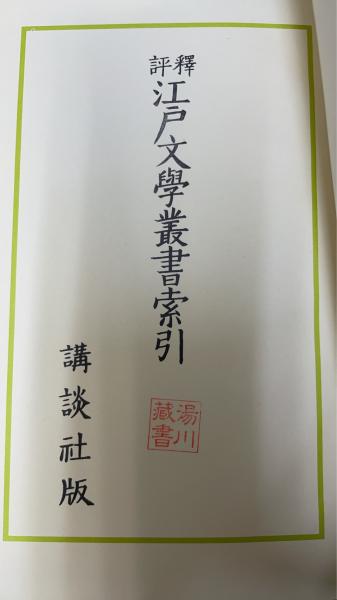 評釋
江戸文學叢書索引
講談社版
湯川
藏書